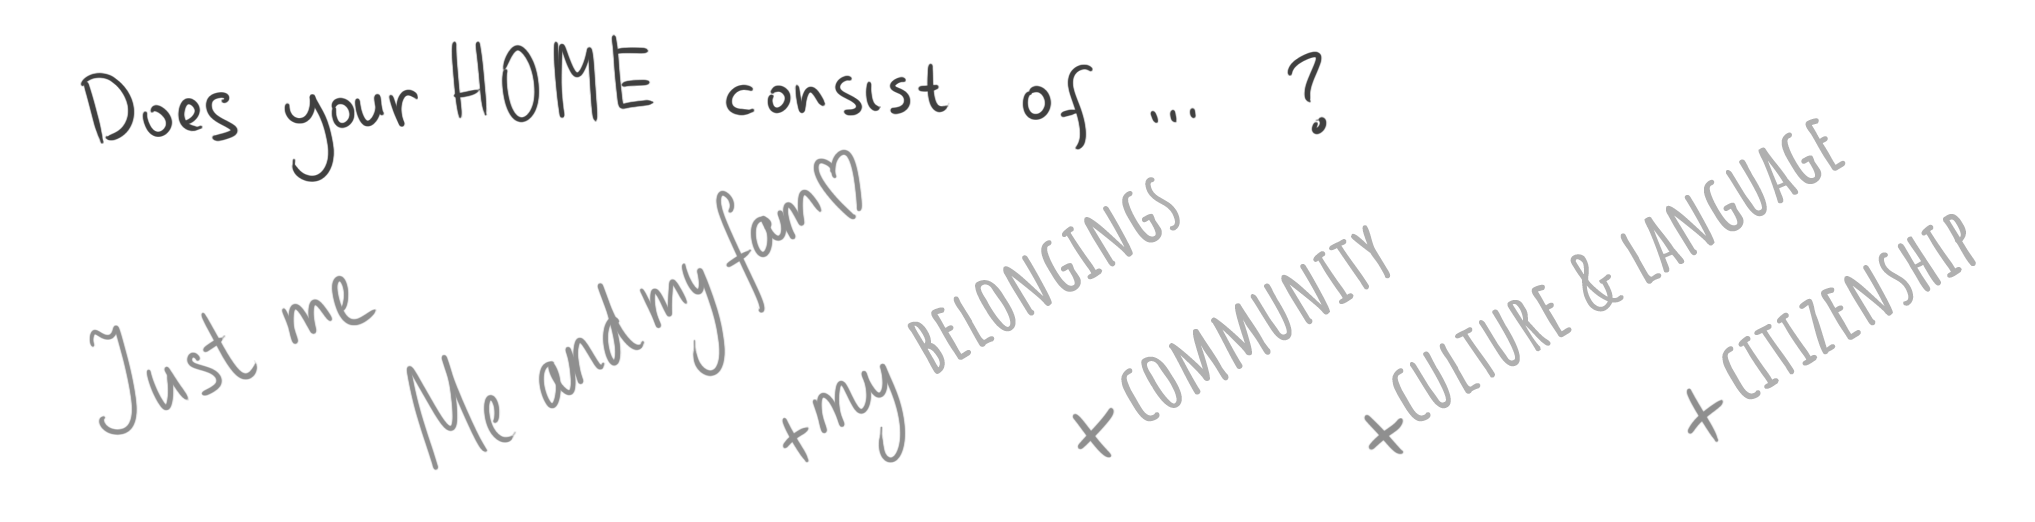 Does your HOME consist of ... ?
Just me
Me and my fam♡
+my BELONGINGS
+COMMUNITY
+CULTURE & LANGUAGE
+CITIZENSHIP